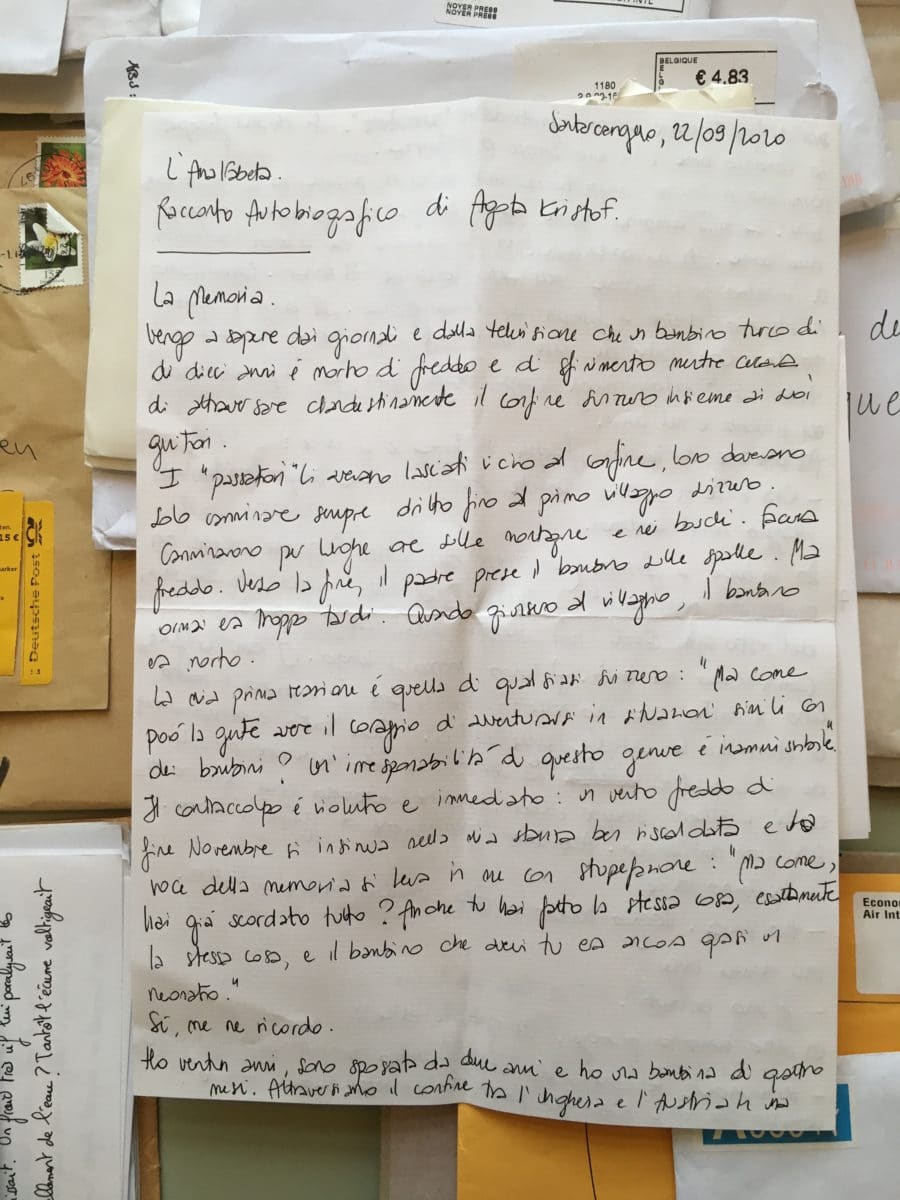 NOYER PRESS
NOYER PRESS
BELGIQUE
€ 4.83
1180
Santarcangelo, 22/09/2020
L'Analfabeta.
Racconto Autobiografico di Agota Kristof.
La Memoria.
Vengo a sapere dai giornali e dalla televisione che un bambino turco di
di dieci anni é morto di freddo e di sfinimento mentre cercava
di attraversare clandestinamente il confine svizzero insieme ai suoi
genitori.
I "passatori" li avevano lasciati vicino al confine, loro dovevano
solo camminare sempre dritto fino al primo villaggio svizzero.
Camminarono per lunghe ore sulle montagne e nei boschi. Faceva
freddo. Verso la fine, il padre prese il bambino sulle spalle. Ma
ormai era troppo tardi. Quando giunsero al villaggio, il bambino
era morto.
La mia prima reazione é quella di qualsiasi svizzero: "Ma come
poó la gente avere il coraggio di avventurarsi in situazioni simili con
dei bambini? Un'irresponsabilitá di questo genere é inammissibile."
Il contraccolpo é violento e immediato: un vento freddo di
fine Novembre si insinua nella mia stanza ben riscaldata e la
voce della memoria si leva in me con stupefazione: "Ma come,
hai giá scordato tutto? Anche tu hai fatto la stessa cosa, esattamente
la stessa cosa, e il bambino che avevi tu era ancora quasi un
neonato."
Sí, me ne ricordo.
Ho ventun anni, sono sposata da due anni e ho una bambina di quattro
mesi. Attraversiamo il confine tra l'Ungheria e l'Austria in una
de
que
en
15 €
Deutsche Post
Econo
Air Int
llement de l'eau? Tantôt l'écume voltigeait